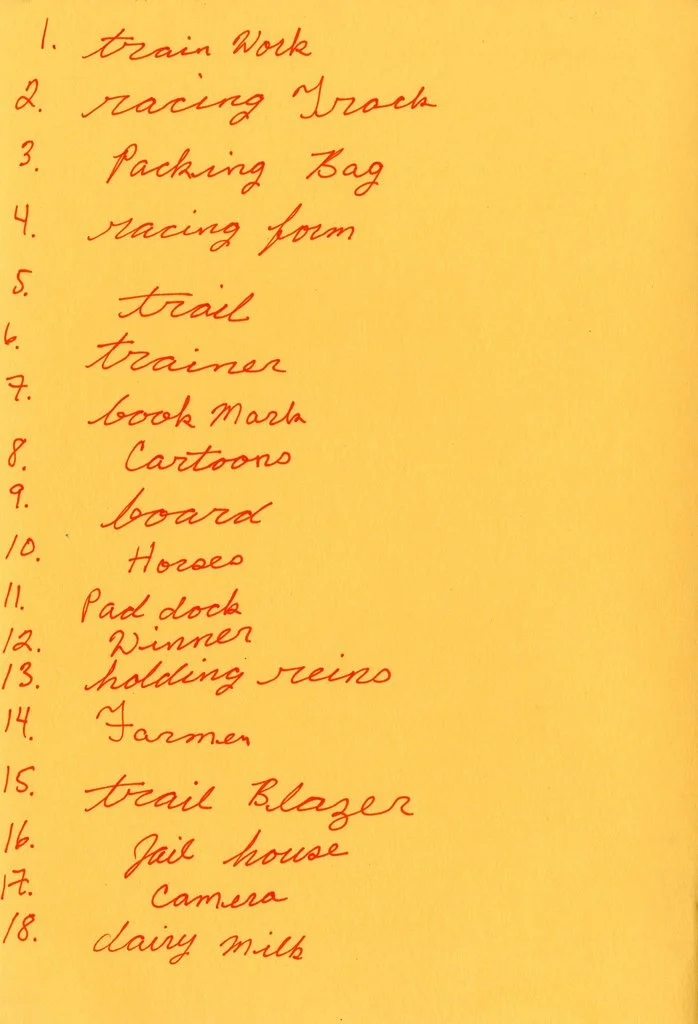 1. train Work
2. racing Track
3. Packing Bag
4. racing form
5. trail
6. trainer
7. book Mark
8. Cartoons
9. board
10. Horses
11. Pad dock
12. Winner
13. holding reins
14. Farmer
15. trail Blazer
16. Jail house
17. Camera
18. dairy Milk